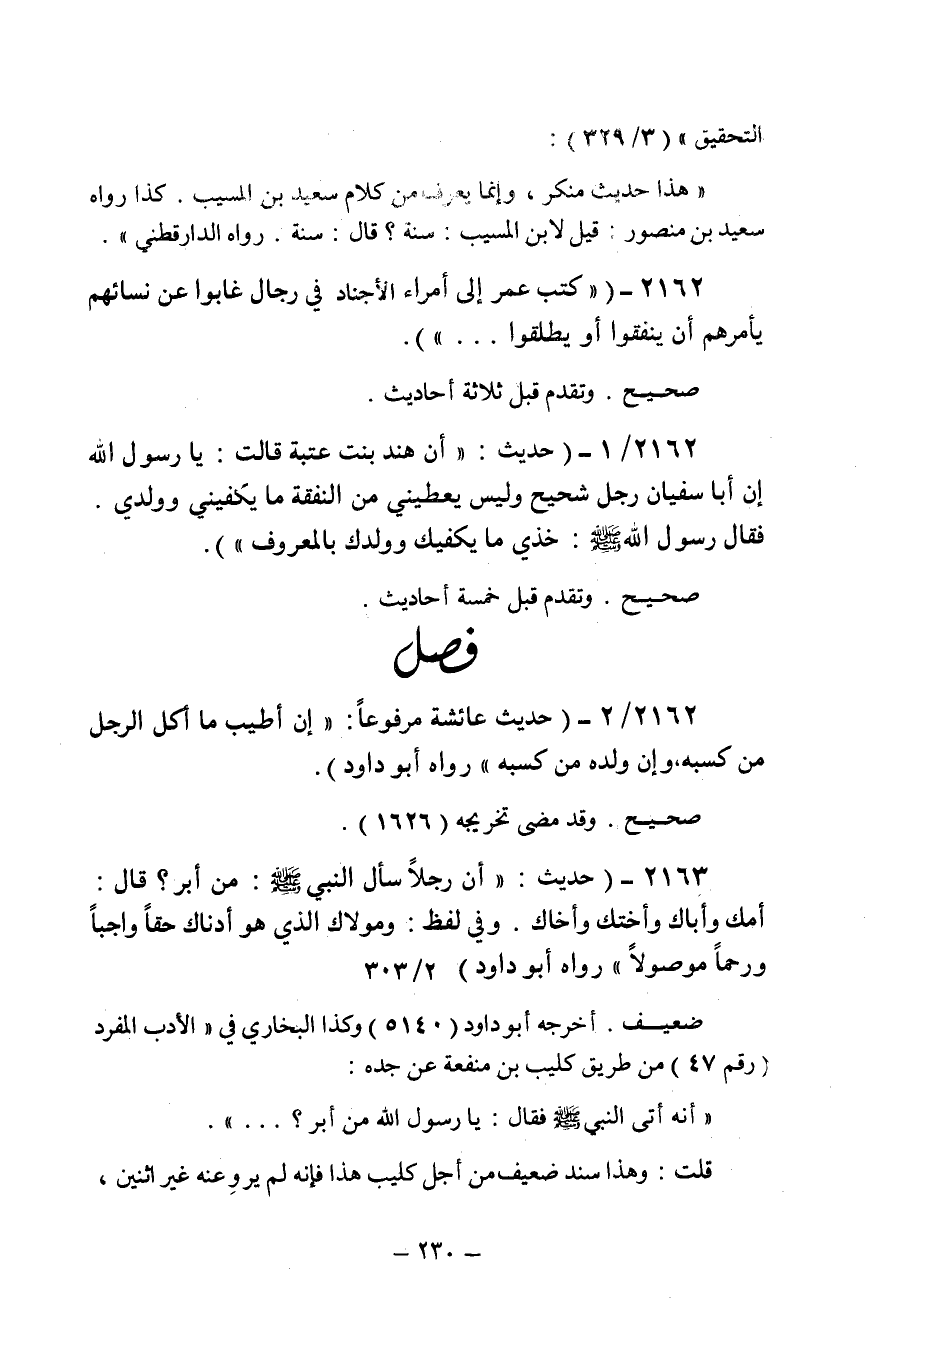 التحقيق » ( ٣/ ٣٢٩ ) :
« هذا حديث منكر ، وإنما يعرف من كلام سعيد بن المسيب . كذا رواه
سعيد بن منصور : قيل لابن المسيب : سنة ؟ قال : سنة . رواه الدارقطني » .
٢١٦٢ ـ ( « كتب عمر إلى أمراء الأجناد في رجال غابوا عن نسائهم
يأمرهم أن ينفقوا أو يطلقوا . . . » ) .
صحيح . وتقدم قبل ثلاثة أحاديث .
٢١٦٢/ ١ ـ ( حديث : « أن هند بنت عتبة قالت : يا رسول الله
إن أبا سفيان رجل شحيح وليس يعطيني من النفقة ما يكفيني وولدي .
فقال رسول الله ﷺ : خذي ما يكفيك وولدك بالمعروف » ) .
صحيح . وتقدم قبل خمسة أحاديث .
فصل
٢١٦٢/ ٢ ـ ( حديث عائشة مرفوعاً : « إن أطيب ما أكل الرجل
من كسبه ، وإن ولده من كسبه » رواه أبو داود ) .
صحيح . وقد مضى تخريجه ( ١٦٢٦ ) .
٢١٦٣ ـ ( حديث : « أن رجلاً سأل النبي ﷺ : من أبر ؟ قال :
أمك وأباك وأختك وأخاك . وفي لفظ : ومولاك الذي هو أدناك حقاً واجباً
ورحماً موصولاً » رواه أبو داود ) ٣٠٣/٢
ضعيف . أخرجه أبو داود ( ٥١٤٠ ) وكذا البخاري في « الأدب المفرد
( رقم ٤٧ ) من طريق كليب بن منفعة عن جده :
« أنه أتى النبي ﷺ فقال : يا رسول الله من أبر ؟ . . . » .
قلت : وهذا سند ضعيف من أجل كليب هذا فإنه لم يروِ عنه غير اثنين ،
ـ ٢٣٠ ـ